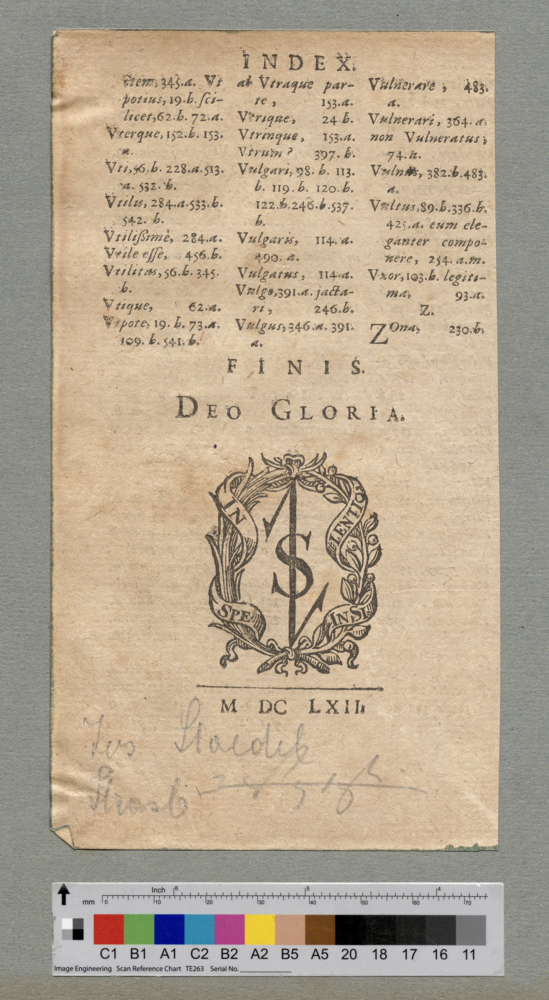 INDEX.
ctem, 345.a. Vt
potius, 19.b. sci-
licet, 62.b. 72.a.
Vterque, 152.b. 153.
a.
Vti, 56.b. 228.a. 513.
a. 532.b.
Vtilis, 284.a. 533.b.
542.b.
Vtilissimè, 284.a.
Vtile esse, 456.b.
Vtilitas, 56.b. 345.
b.
Vtique, 62.a.
Vtpote, 19.b. 73.a.
109.b. 541.b.
ab Vtraque par-
te, 153.a.
Vtrique, 24.b.
Vtrinque, 153.a.
Vtrum? 397.b.
Vulgari, 98.b. 113.
b. 119.b. 120.b.
122.b. 246.b. 537.
b.
Vulgaris, 114.a.
490.a.
Vulgatus, 114.a.
Vulgo, 391.a. jacta-
ri, 246.b.
Vulgus, 346.a. 391.
a.
Vulnerare, 483.
a.
Vulnerari, 364.a.
non Vulneratus,
74.a.
Vulnus, 382.b. 483.
a.
Vultus, 89.b. 336.b.
425.a. eum ele-
ganter compo-
nere, 254.a.m.
Vxor, 103.b. legiti-
ma, 93.a.
Z.
ZOna, 230.b.
FINIS.
DEO GLORIA.
IN
SPE
LENTIO
INSI
S
M DC LXII
mm
Inch
0 10 20 30 40 50 60 70
C1 B1 A1 C2 B2 A2 B5 A5 20 18 17 16 11
Image Engineering Scan Reference Chart TE263 Serial No.